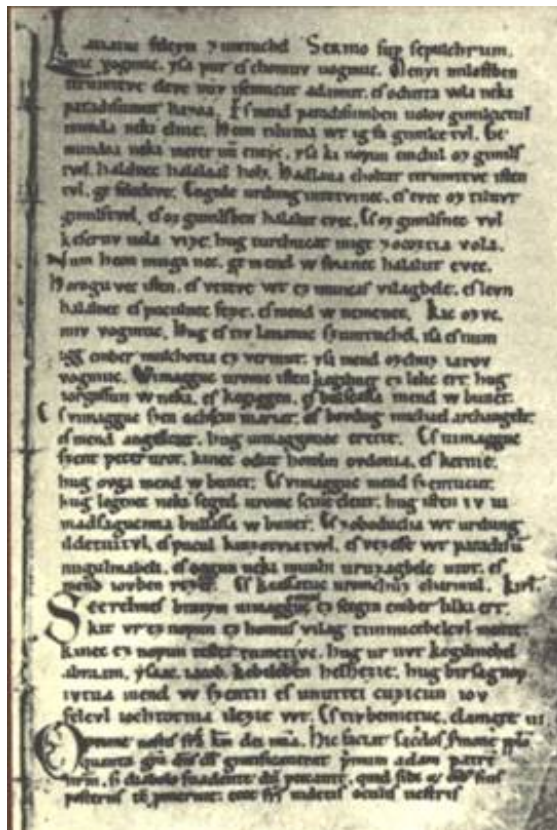 Latiatuc feleym zumtuchel Sermo sup sepulchrum.
mic vogmuc. ysa pur es chomuv uogmuc. Menyi milostben
terumteve eleve miv isemucut adamut. es odutta vola neki
paradisumut hazoa. Es mend paradisumben uolov gimilcictul
munda neki elnie. Heon tilutoa wt ig fa gimilce tvl. Ge
mundoa neki meret nū eneyc. ysa ki nopun emdul oz gimils
twl. halalnec halalaal holz. Hadlaua choltat terumteve isten
tvl. ge feledeve. Engede urdung intetvinec. es evec oz tiluvt
gimilstwl. es oz gimilsben halalut evec. Es oz gimilsnec vvl
keseruv uola vize. hug turchucat mige zocoztia vola.
Num heon muga nec. ge mend w foianec halalut evec.
Horogu vec isten. es veteve wt ez muncas vilagbele. es levn
halalnec es poculnec feze. es mend w nemenec. Kic ozvc.
miv vogmuc. Hug es tiv latiatuc szumtuchel. isa es num
igg ember mulchotia ez vermut. ysa mend ozchuz iarov
vogmuc. Wimagguc uromv isten kegilmet ez lelic ert. hug
iorgossun w neki. es kegiggen. es bulsassa mend w bunet.
Es vimagguc szen achscin mariat. es bovdug michael archangelt.
es mend angelcut. hug uimaggonoc erette. Es uimagguc
szent peter urot. kinec odut hotolm ovdonia. es ketnie.
hug ovga mend w bunet. Es vimagguc mend szentucut.
hug legenec neki seged uromc scine eleut. hug isten iv ui
madsaguc mia bulsassa w bunet. Es zoboducha wt urdung
ildetuitvl. es pucul kinzotviatwl. es vezesse wt paradisu
nugulmabeli. es oggun neki munhi uruzagbele utot. es
mend iovben rezet. Es keassatuc uromchuz charmul. kirl.
Scerelmes bratym uimagomuc ez scegin ember lilki ert.
kit vr ez nopun ez homus vilag timnucebelevl mente.
kinec ez nopun testet tumetivc. hug ur uvt kegilmehel
abraam. ysaac. iacob. kebeleben helhezie. hug birsagnop
ivtva mend w szentii es unuttei cuzicun iov
felevl iochtotnia ilezie wt. Es tivbennetuc. clamate iii
nostis frs dei mia. hic faciat
quanta gra adam
si diabolo suadente quid sibi
posteris ecce videtis oculis vestris